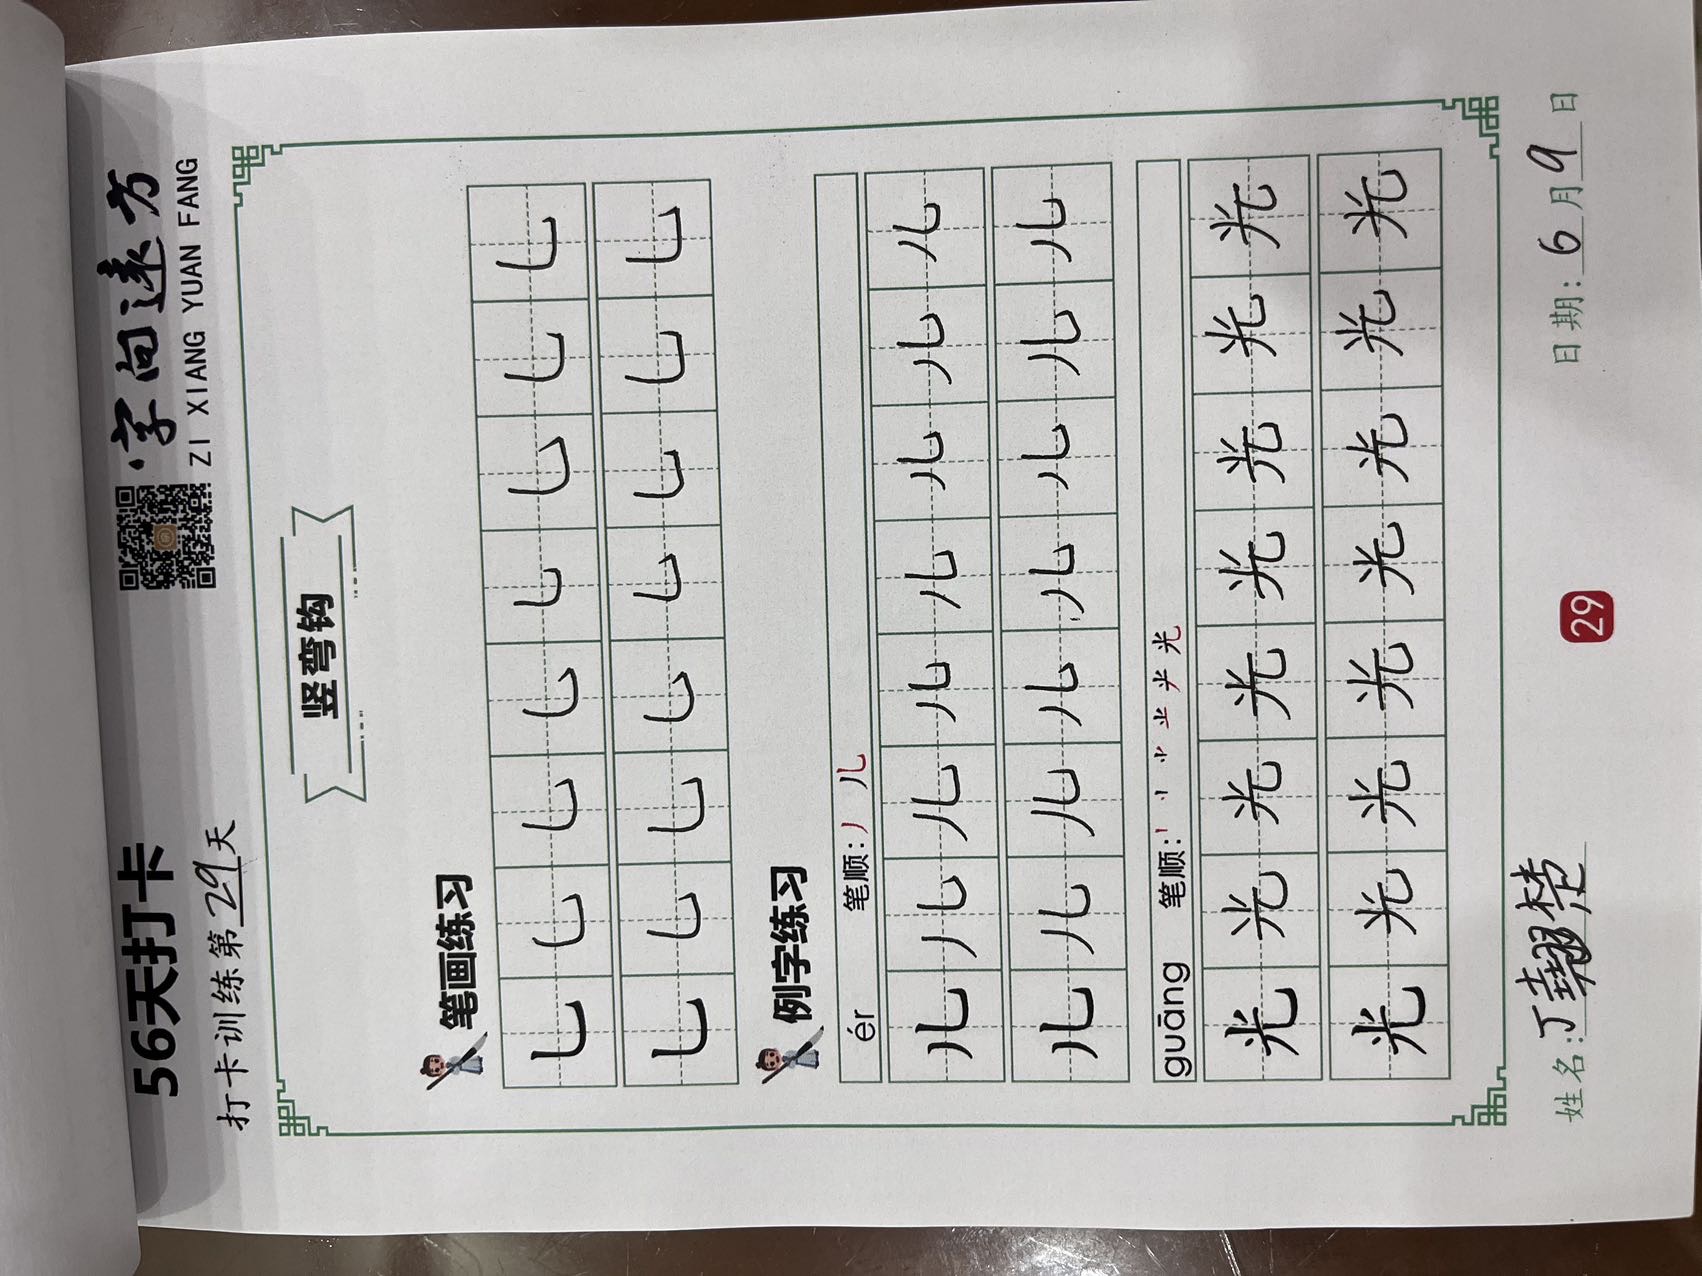 56天打卡 字向遠方
打卡训练第29天 ZI XIANG YUAN FANG
竖弯钩
笔画练习
乚 乚 乚 乚 乚 乚 乚 乚
乚 乚 乚 乚 乚 乚 乚 乚
例字练习
ér 笔顺：丿 儿
儿 儿 儿 儿 儿 儿 儿 儿
儿 儿 儿 儿 儿 儿 儿 儿
guāng 笔顺：光
光 光 光 光 光 光 光 光
光 光 光 光 光 光 光 光
姓名：丁 楚 日期：6月9日
29